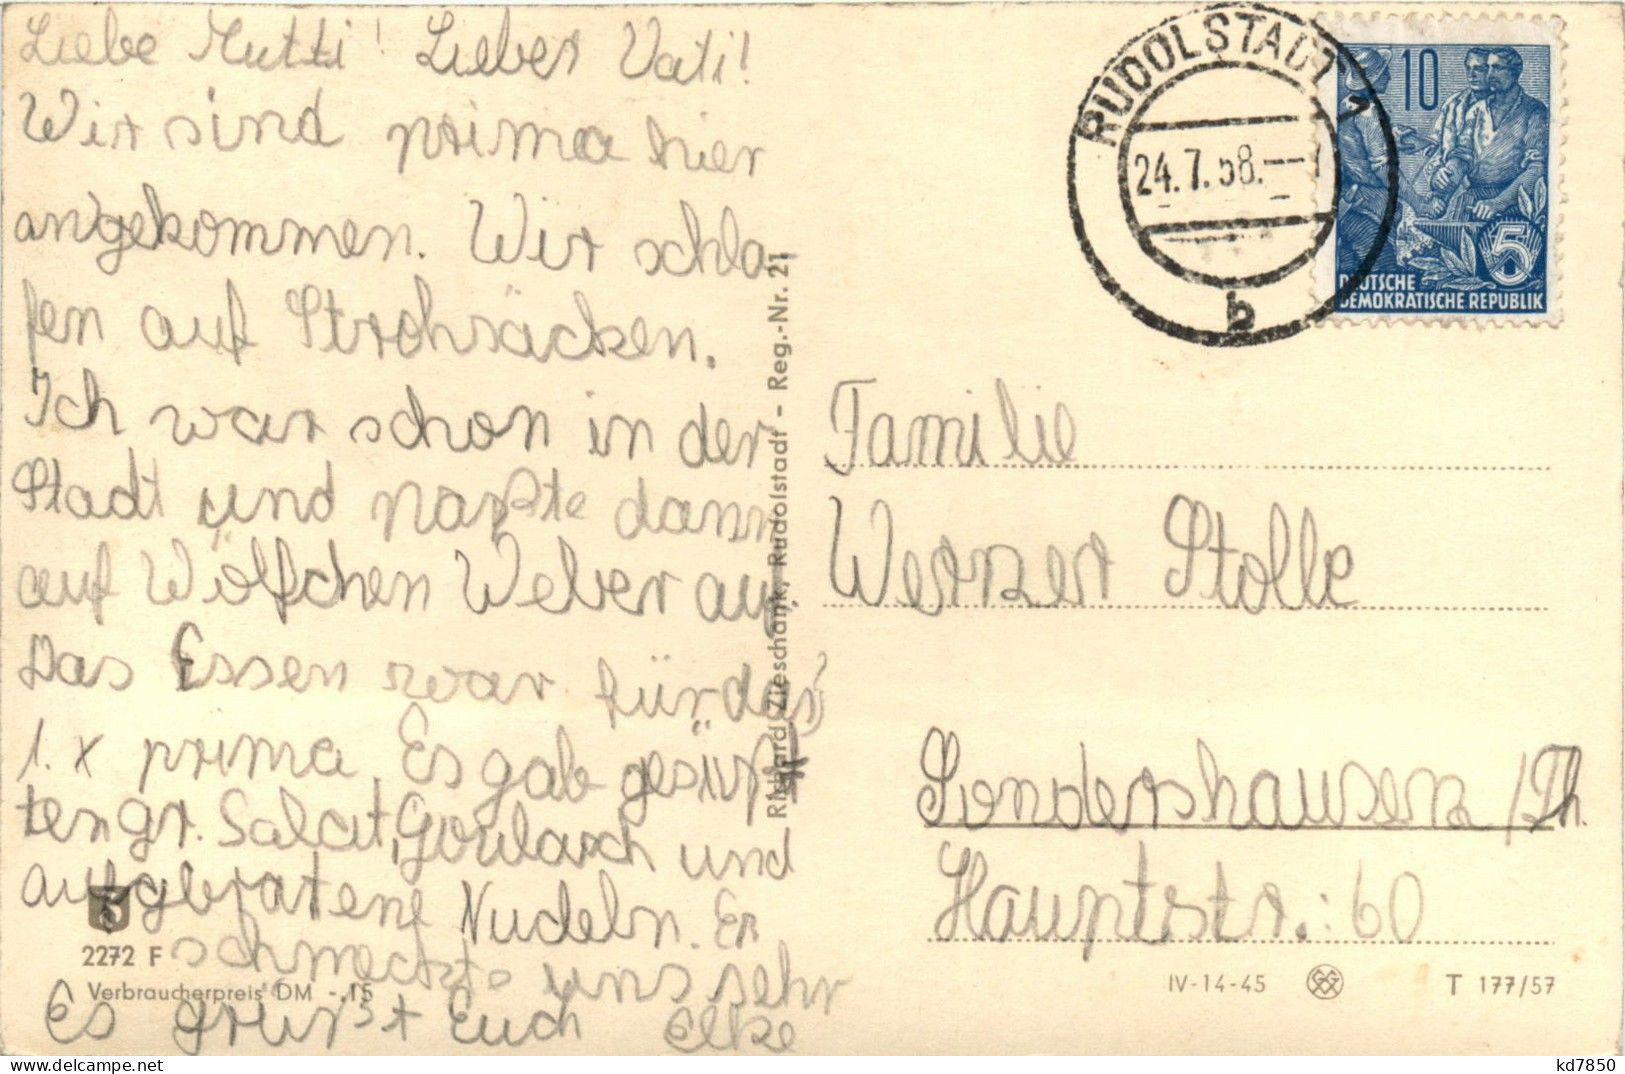 Liebe Mutti! Lieber Vati!
Wir sind prima hier
angekommen. Wir schla-
fen auf Strohsäcken.
Ich war schon in der
Stadt und paßte dann
auf Wölfchen Weber auf,
Das Essen war für das
1. x prima. Es gab gesüß-
ten gr. Salat, Goulasch und
aufgebratene Nudeln. Er
schmeckte uns sehr
Es grüßt Euch Elke
2272 F
Verbraucherpreis DM -.15
Richard Zieschank, Rudolstadt - Reg.-Nr. 21
RUDOLSTADT 1
24.7.58.
b
10
5
DEUTSCHE
DEMOKRATISCHE REPUBLIK
Familie
Werner Stolle
Sondershausen /Th.
Hauptstr.: 60
IV-14-45
T 177/57
www.delcampe.net
kd7850